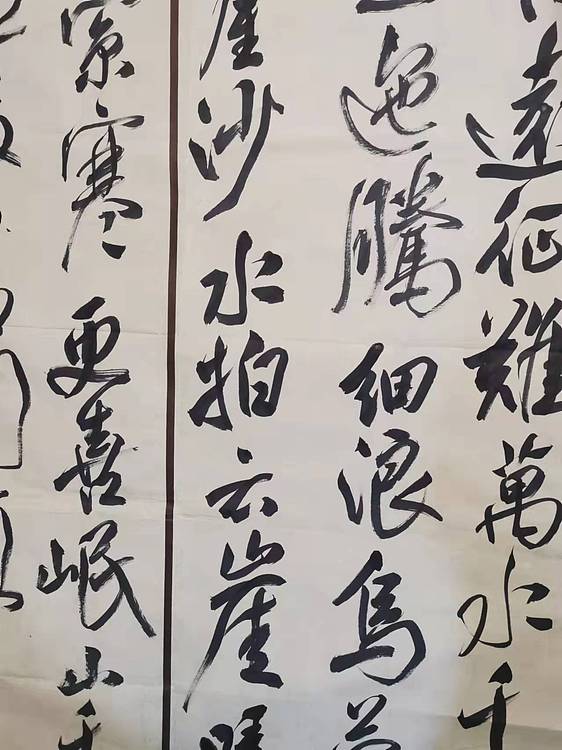 遠征難萬水千
迤騰細浪烏蒙
沙水拍云崖暖
索寒更喜岷山千